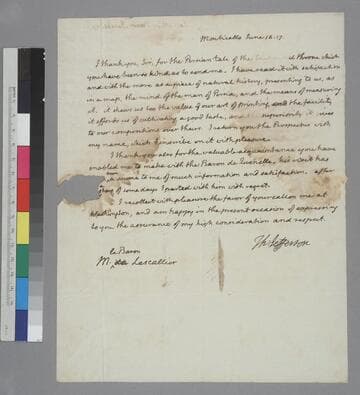 Monticello June 16. 17.
I thank you, Sir, for the Persian tale of the Throne which
you have been so kind as to send me. I have read it with satisfaction
and with the more as a piece of natural history, presenting to us, as
in a map, the mind of the man of Persia, and the means of measuring
it. it shews us too the value of our art of printing, and the facility
it affords us of cultivating a good taste, and superiority it
to our compositions over theirs. I return you the Prospectus with
my name, which I ensolve on it with pleasure.
I thank you also for the valuable acquaintance you have
enabled me to make with the Baron de his visit has
been a source to me of much information and satisfaction. after
a stay of some days I parted with him with regret.
I recollect with pleasure the favor of your call on me at
Washington, and am happy in the present occasion of expressing
to you the assurance of my high consideration and respect.
Th: Jefferson
le Baron
M. de Lescallier